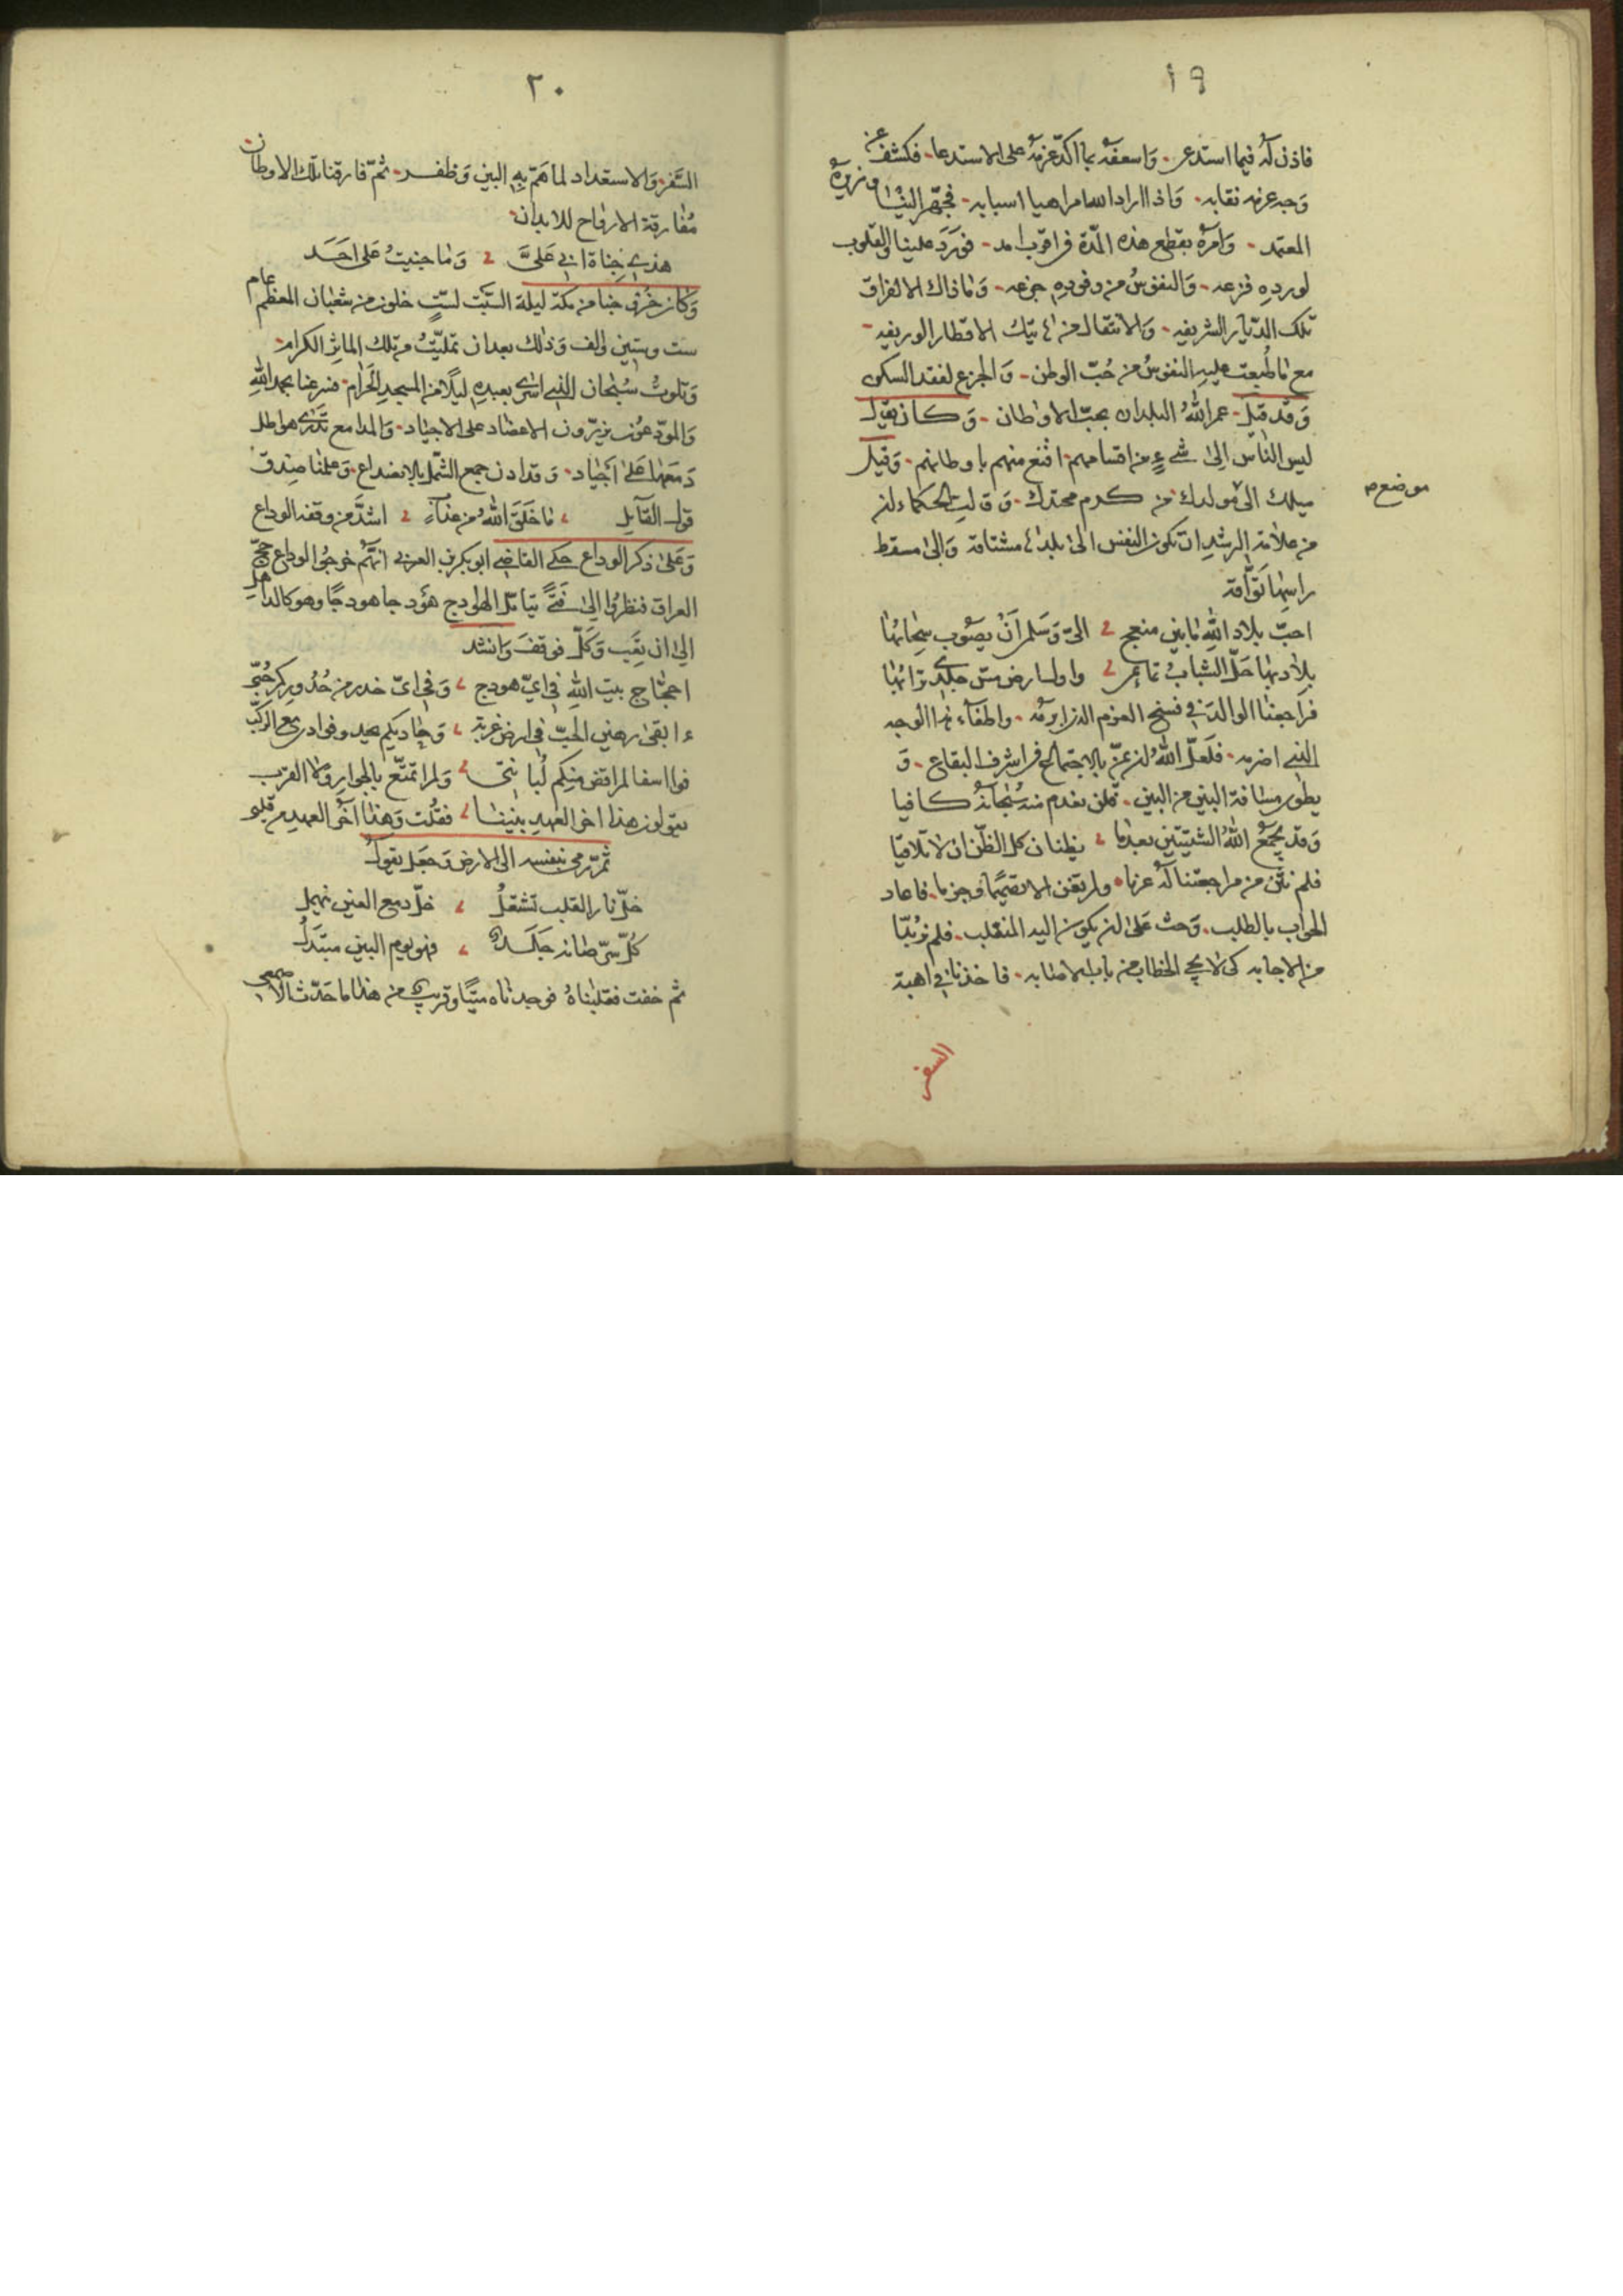 ١٩
فاذن له فيما استدعى۔ وَاسعفه بما اكدّ عزمه على الاستدعا۔ فكشف عن
وَجه عزمه نقابه۔ وَاذا اراد الله امرا هيا اسبابه۔ فجهّز الينا وزيره
المعتمد۔ وَامره بقطع هذه المدّة في اقرب امد۔ فورَدَ علينا والقلوب
لورده فزعه۔ وَالنفوسُ من وفوده جزعه۔ وَما ذاك الا لفراق
تلك الديار الشريفه۔ وَالانتقال من هاتيك الاقطار الوريفه۔
مع ما طُبعت عليه النفوسُ من حُبّ الوطن۔ وَالجزع لفقد السكن
وَقد قيل۔ عمر اللهُ البلدان بحبّ الاوطان۔ وَكان يقال
ليس النّاس الىٰ شيءٍ من اقسامهم اقنع منهم باوطانهم۔ وَقيل
ميلك الى مولدك من كرم محتدك۔ وَقالت الحكماء ان
موضع
من علامة الرشد ان تكون النفس الىٰ بلدها مشتاقة وَالىٰ مسقط
راسها تَوّاقة
احبّ بلاد اللهِ ما بين منعج الىّ وَسَلمى اَنْ يصَوب سحابُها
بلاد بها حَلّ الشباب تمائمي واول ارض مسّ جلدي ترابُها
فراجعنا الوالد في فسخ العزم الذي ابرمه۔ واطفاء هذا الوجد
الذي اضرمه۔ فلعلّ اللهُ ان يمنّ بالاجتماع في اشرف البقاع۔ وَ
يطوي مسافة البين من البين۔ فلن نعدم منه سُبحانهُ كافيا
وَقد يجمعُ اللهُ الشتيتين بعدما يظنان كل الظّن ان لا تلاقيا
فلم تثن من مراجعتنا له عزما ولم تغن الا تصميما وجزما۔ فاعاد
الجواب بالطلب۔ وَحث عَلىٰ ان يكون اليه المنقلب۔ فلم نر بُدّا
من الاجابه كى لا يخرج الخطاب من باب الاصابه۔ فاخذنا في اهبة
السفر
٢٠
السَّفر۔ وَالاستعداد لما هَمّ بهِ البين وَظفر۔ ثمّ فارقنا تلك الاوطان
مُفارقة الارواح للابدان
هذي جناة ابي عَلىَّ وَما جنيتُ عَلى احَد
وَكان خرُوجنا من مكة ليلة السّبت لستٍ خلون من شعبان المعظم عام
ست وستين والف وَذلك بعدان تمليّتُ من تلك الماثِر الكرام۔
وَتلوتُ سُبْحان الذي اسْرى بعبدهِ ليلًا من المسجدِ الحَرام۔ فسرعنا بحمد اللهِ
وَالمودّعون يزرّون الاعضاد على الاجياد۔ وَالمدامع تَذرى هواطل
دَمعَها عَلىٰ اَجْياد۔ وَقد اذن جمع الشّمل بالانصداع۔ وَعلمنا صِدق
قول القآيل ما خَلَقَ اللهُ من عذابٍ اشدّ من وقفه الوداع
وَعَلىٰ ذكر الوداع حكى القاضي ابو بكر بن العربي انهُم خرجوا لوداع حَجّ
العراق فنظرُوا الىٰ فَتىً يتامّل الهوادج هَودجا هودجًا وهو كالذاهل
الىٰ ان تعِبَ وَكَلّ فوقفَ وَانشد
احجّاج بيت اللهِ في ايّ هودج وَفي اىّ خدر من خُدُوركم حُبّي
ءابقىٰ رهين الحبّ في ارض غربة وَحاديكم يحدو فؤادى مع الركب
فوا اسفا لم اقض منكم لُبانتى وَلم اتمتّع بالجوار ولا القرب
يقولون هذا اخر العهدِ بيننا فقُلت وَهذا آخر العهدِ من قلبي
ثم رمى بنفسه الى الارض وَجَعل يقولُ
خلّ نار القلب تشتعلُ خلّ دمع العين ينهملُ
كُلّ سرّ صانه جَلَد فهو يوم البين مبتذَلُ
ثم خفت فقلبناهُ فوجدناه ميتًا وقريب من هذا ما حَدّث الاصمعي